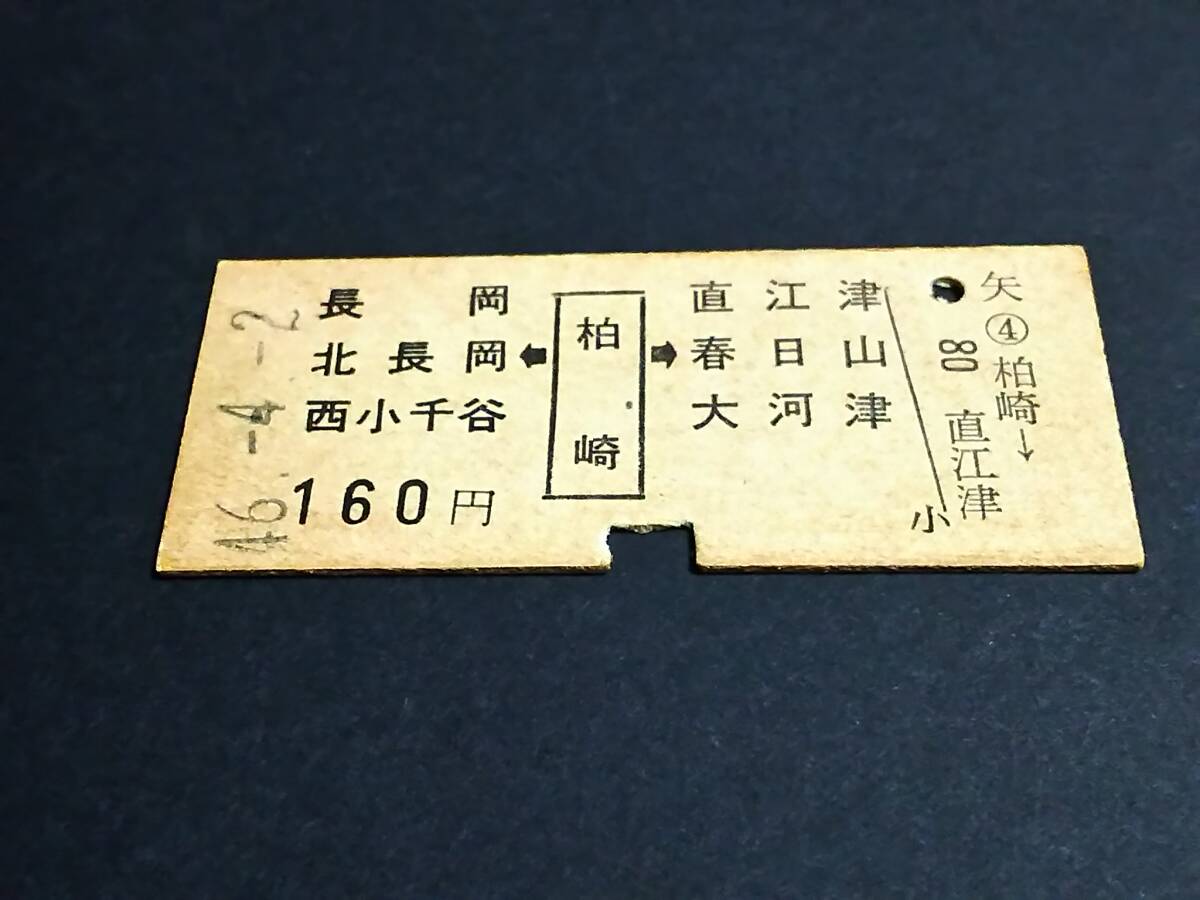 46.-4.-2
長岡
北長岡
西小千谷
160円
柏崎
直江津
春日山
大河津
小
80
矢
④
柏崎→
直江津